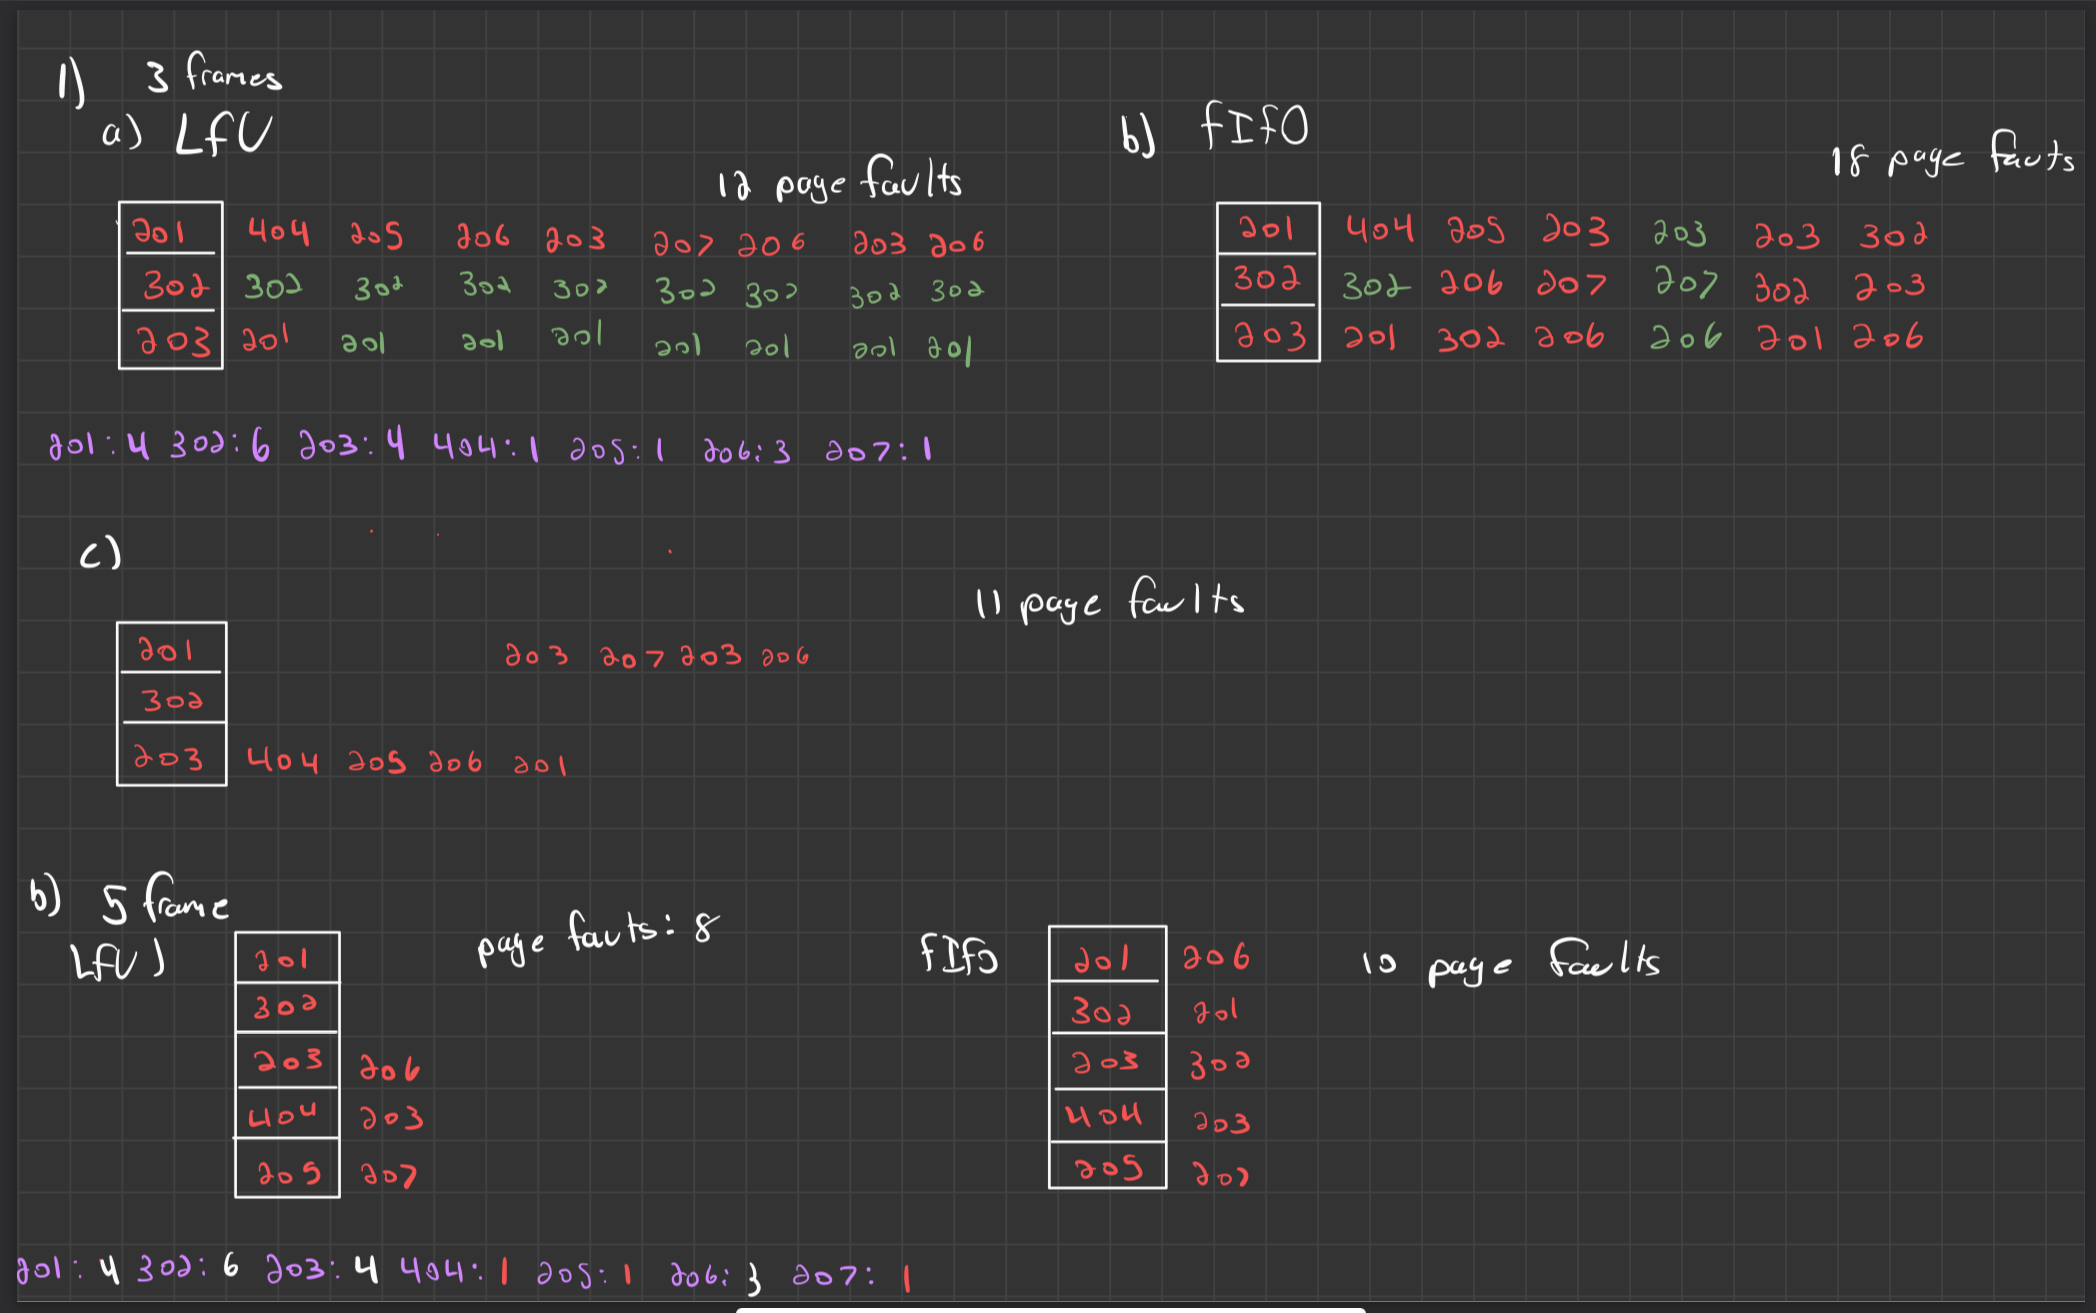 1) 3 frames
a) LFU
12 page faults
201 404 205 206 203 207 206 203 206
302 302 302 302 302 302 302 302 302
203 201 201 201 201 201 201 201 201
201:4 302:6 203:4 404:1 205:1 206:3 207:1
b) FIFO
18 page fauts
201 404 205 203 203 203 302
302 302 206 207 207 302 203
203 201 302 206 206 201 206
c)
11 page faults
201 203 207 203 206
302
203 404 205 206 201
b) 5 frame
LFU)
page fauts: 8
201
302
203 206
404 203
205 207
FIFO
10 page faults
201 206
302 201
203 302
404 203
205 207
201: 4 302: 6 203: 4 404: 1 205: 1 206: 3 207: 1